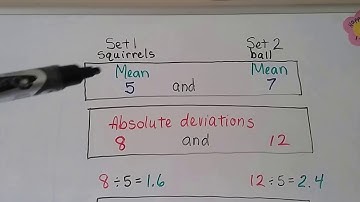 Set 1 Set 2
squirrels ball
Mean Mean
5 and 7
Absolute deviations
8 and 12
8÷5=1.6 12÷5=2.4